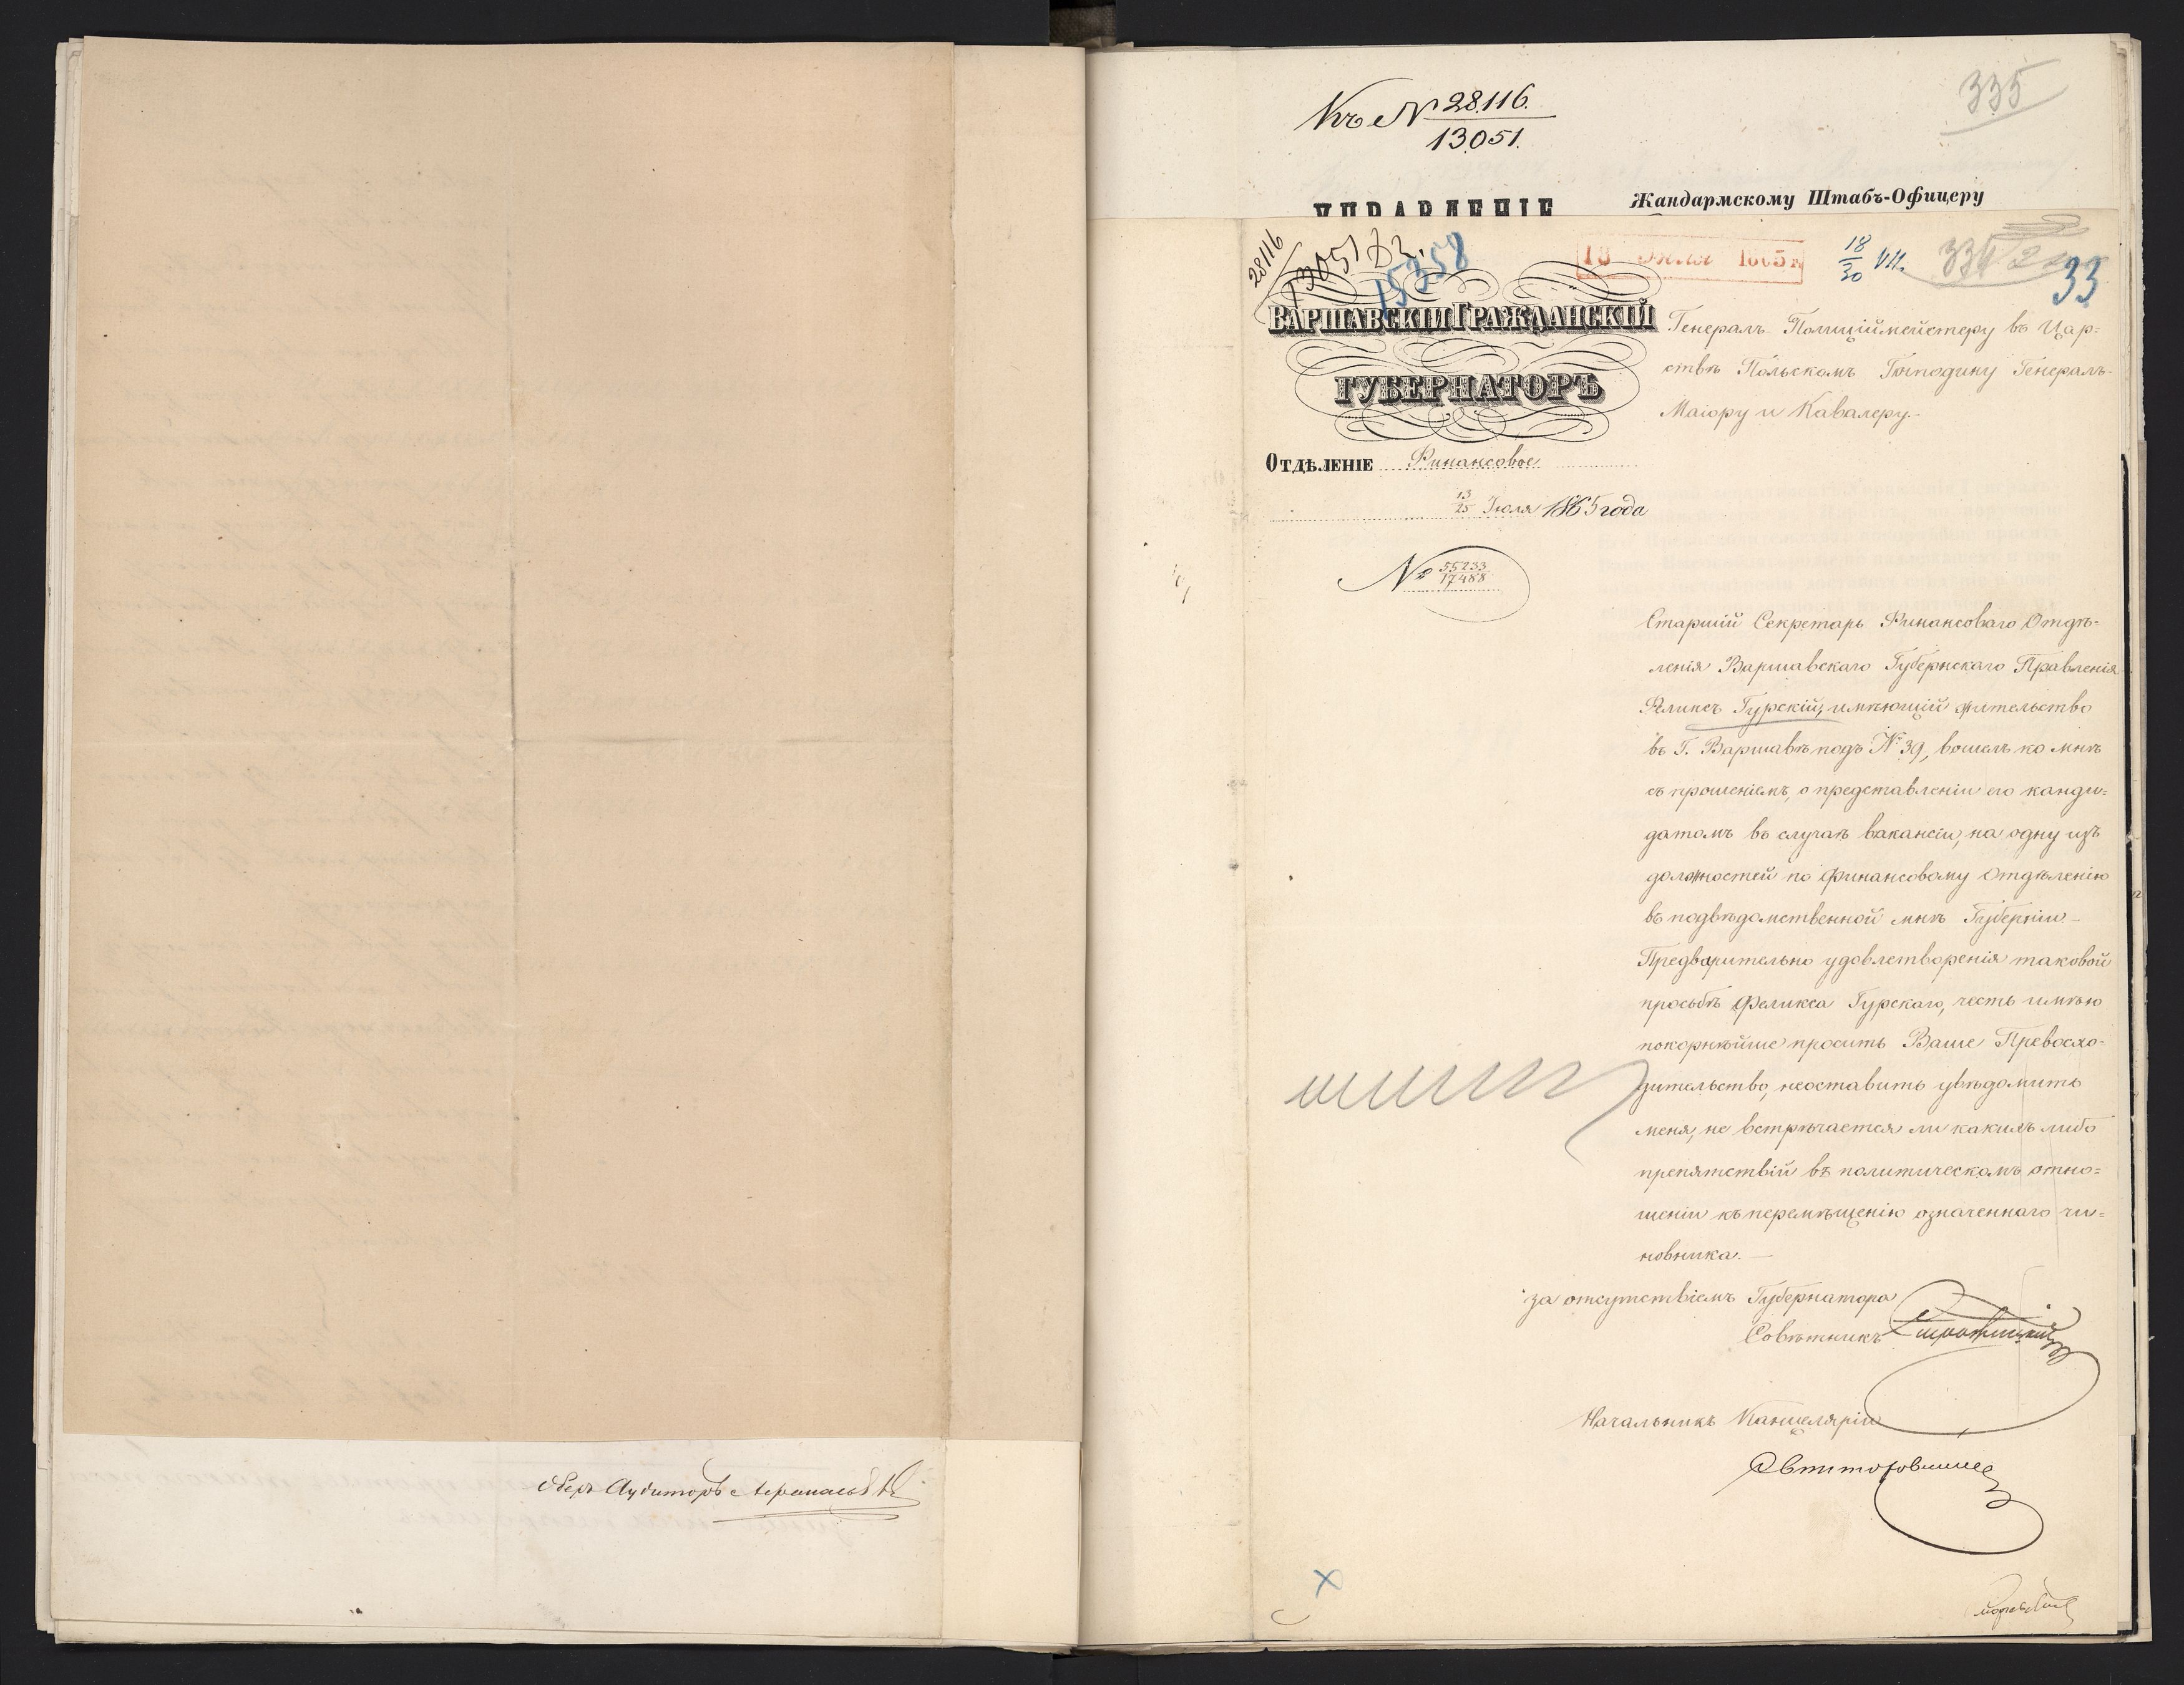 Оберъ Аудиторъ
Къ № 28.116.
13.051.
335
УПРАВЛЕНІЕ
Жандармскому Штабъ-Офицеру
28116
13051
15358
18 Іюля 1865 г.
18/30 VII.
334
33
ВАРШАВСКІЙ ГРАЖДАНСКІЙ
ГУБЕРНАТОРЪ
ОТДѢЛЕНІЕ Финансовое
13/25 Іюля 1865 года
№ 55233/17488
Генералъ-Полиціймейстеру въ Цар=
ствѣ Польскомъ Господину Генералъ-
Маіору и Кавалеру.-
Старшій Секретарь Финансоваго Отдѣ=
ленія Варшавскаго Губернскаго Правленія
Феликсъ Гурскій, имѣющій жительство
въ Г. Варшавѣ подъ № 39, вошелъ ко мнѣ
съ прошеніемъ, о представленіи его канди=
датомъ въ случаѣ вакансіи, на одну изъ
должностей по Финансовому Отдѣленію
въ подвѣдомственной мнѣ Губерніи.-
Предварительно удовлетворенія таковой
просьбѣ Феликса Гурскаго, честь имѣю
покорнѣйше просить Ваше Превосхо-
дительство, неоставить увѣдомить
меня, не встрѣчается ли какихъ либо
препятствій въ политическомъ отно=
шеніи къ перемѣщенію означеннаго чи=
новника. —
за отсутствіемъ Губернатора
Совѣтникъ
Начальникъ Канцеляріи